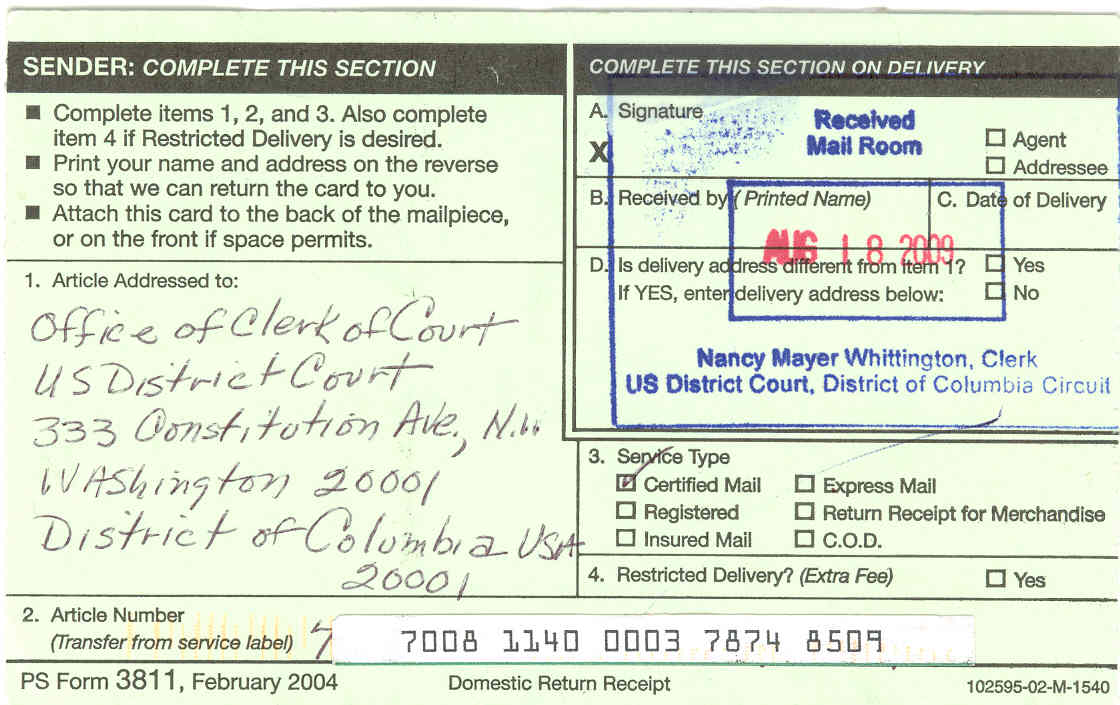 SENDER: COMPLETE THIS SECTION
■ Complete items 1, 2, and 3. Also complete
item 4 if Restricted Delivery is desired.
■ Print your name and address on the reverse
so that we can return the card to you.
■ Attach this card to the back of the mailpiece,
or on the front if space permits.
1. Article Addressed to:
Office of Clerk of Court
US District Court
333 Constitution Ave., N.W
WAshington 20001
District of Columbia USA
20001
COMPLETE THIS SECTION ON DELIVERY
A. Signature
X
Received
Mail Room
☐ Agent
☐ Addressee
B. Received by (Printed Name)
C. Date of Delivery
AUG 18 2009
D. Is delivery address different from item 1? ☐ Yes
If YES, enter delivery address below: ☐ No
Nancy Mayer Whittington, Clerk
US District Court, District of Columbia Circuit
3. Service Type
☑ Certified Mail ☐ Express Mail
☐ Registered ☐ Return Receipt for Merchandise
☐ Insured Mail ☐ C.O.D.
4. Restricted Delivery? (Extra Fee) ☐ Yes
2. Article Number
(Transfer from service label)
7008 1140 0003 7874 8509
PS Form 3811, February 2004
Domestic Return Receipt
102595-02-M-1540